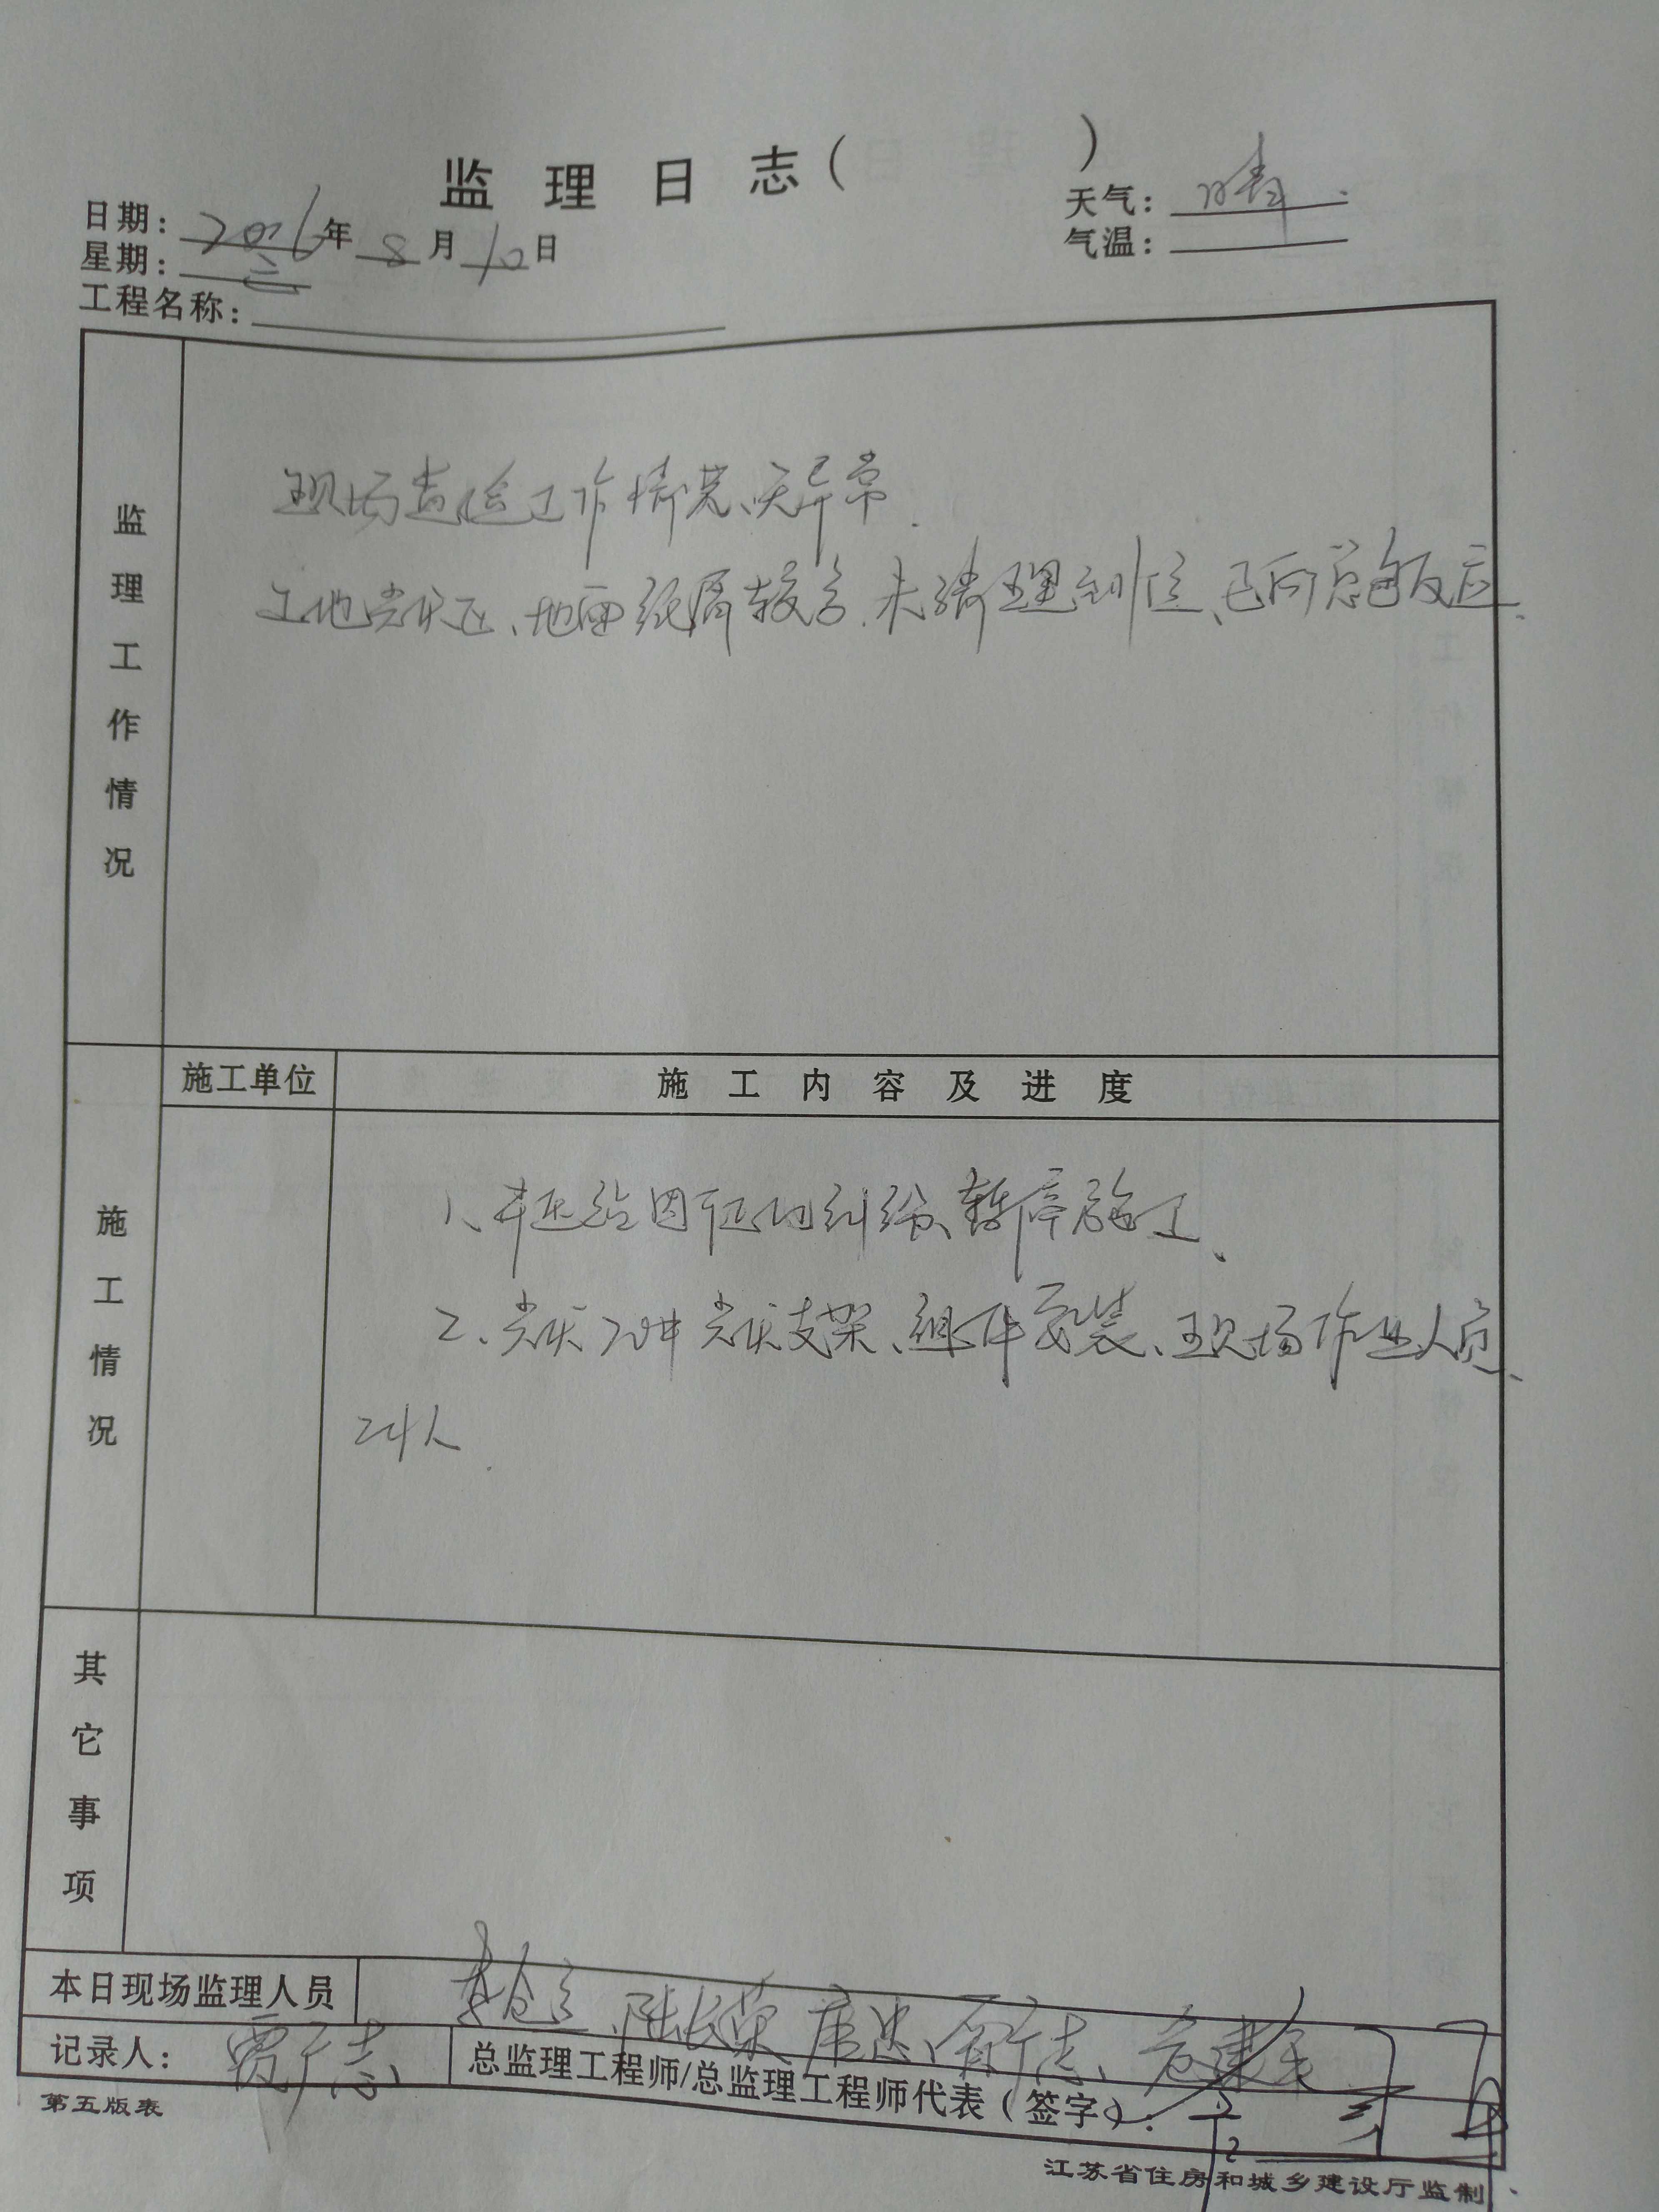 监理日志（ ）
日期：2016年8月10日
天气：晴
星期：三
气温：
工程名称：
监理工作情况
现场巡检工作情况、无异常.
工地光伏区、地面纸屑较多.未清理到位、已向总包反应.
施工单位
施工内容及进度
施工情况
1、升压站因 纠纷、暂停施工、
2、光伏 光伏支架、组件安装、现场作业人员、
24人.
其它事项
本日现场监理人员
陆长荣
记录人：贾广志
总监理工程师/总监理工程师代表（签字）：
第五版表
江苏省住房和城乡建设厅监制